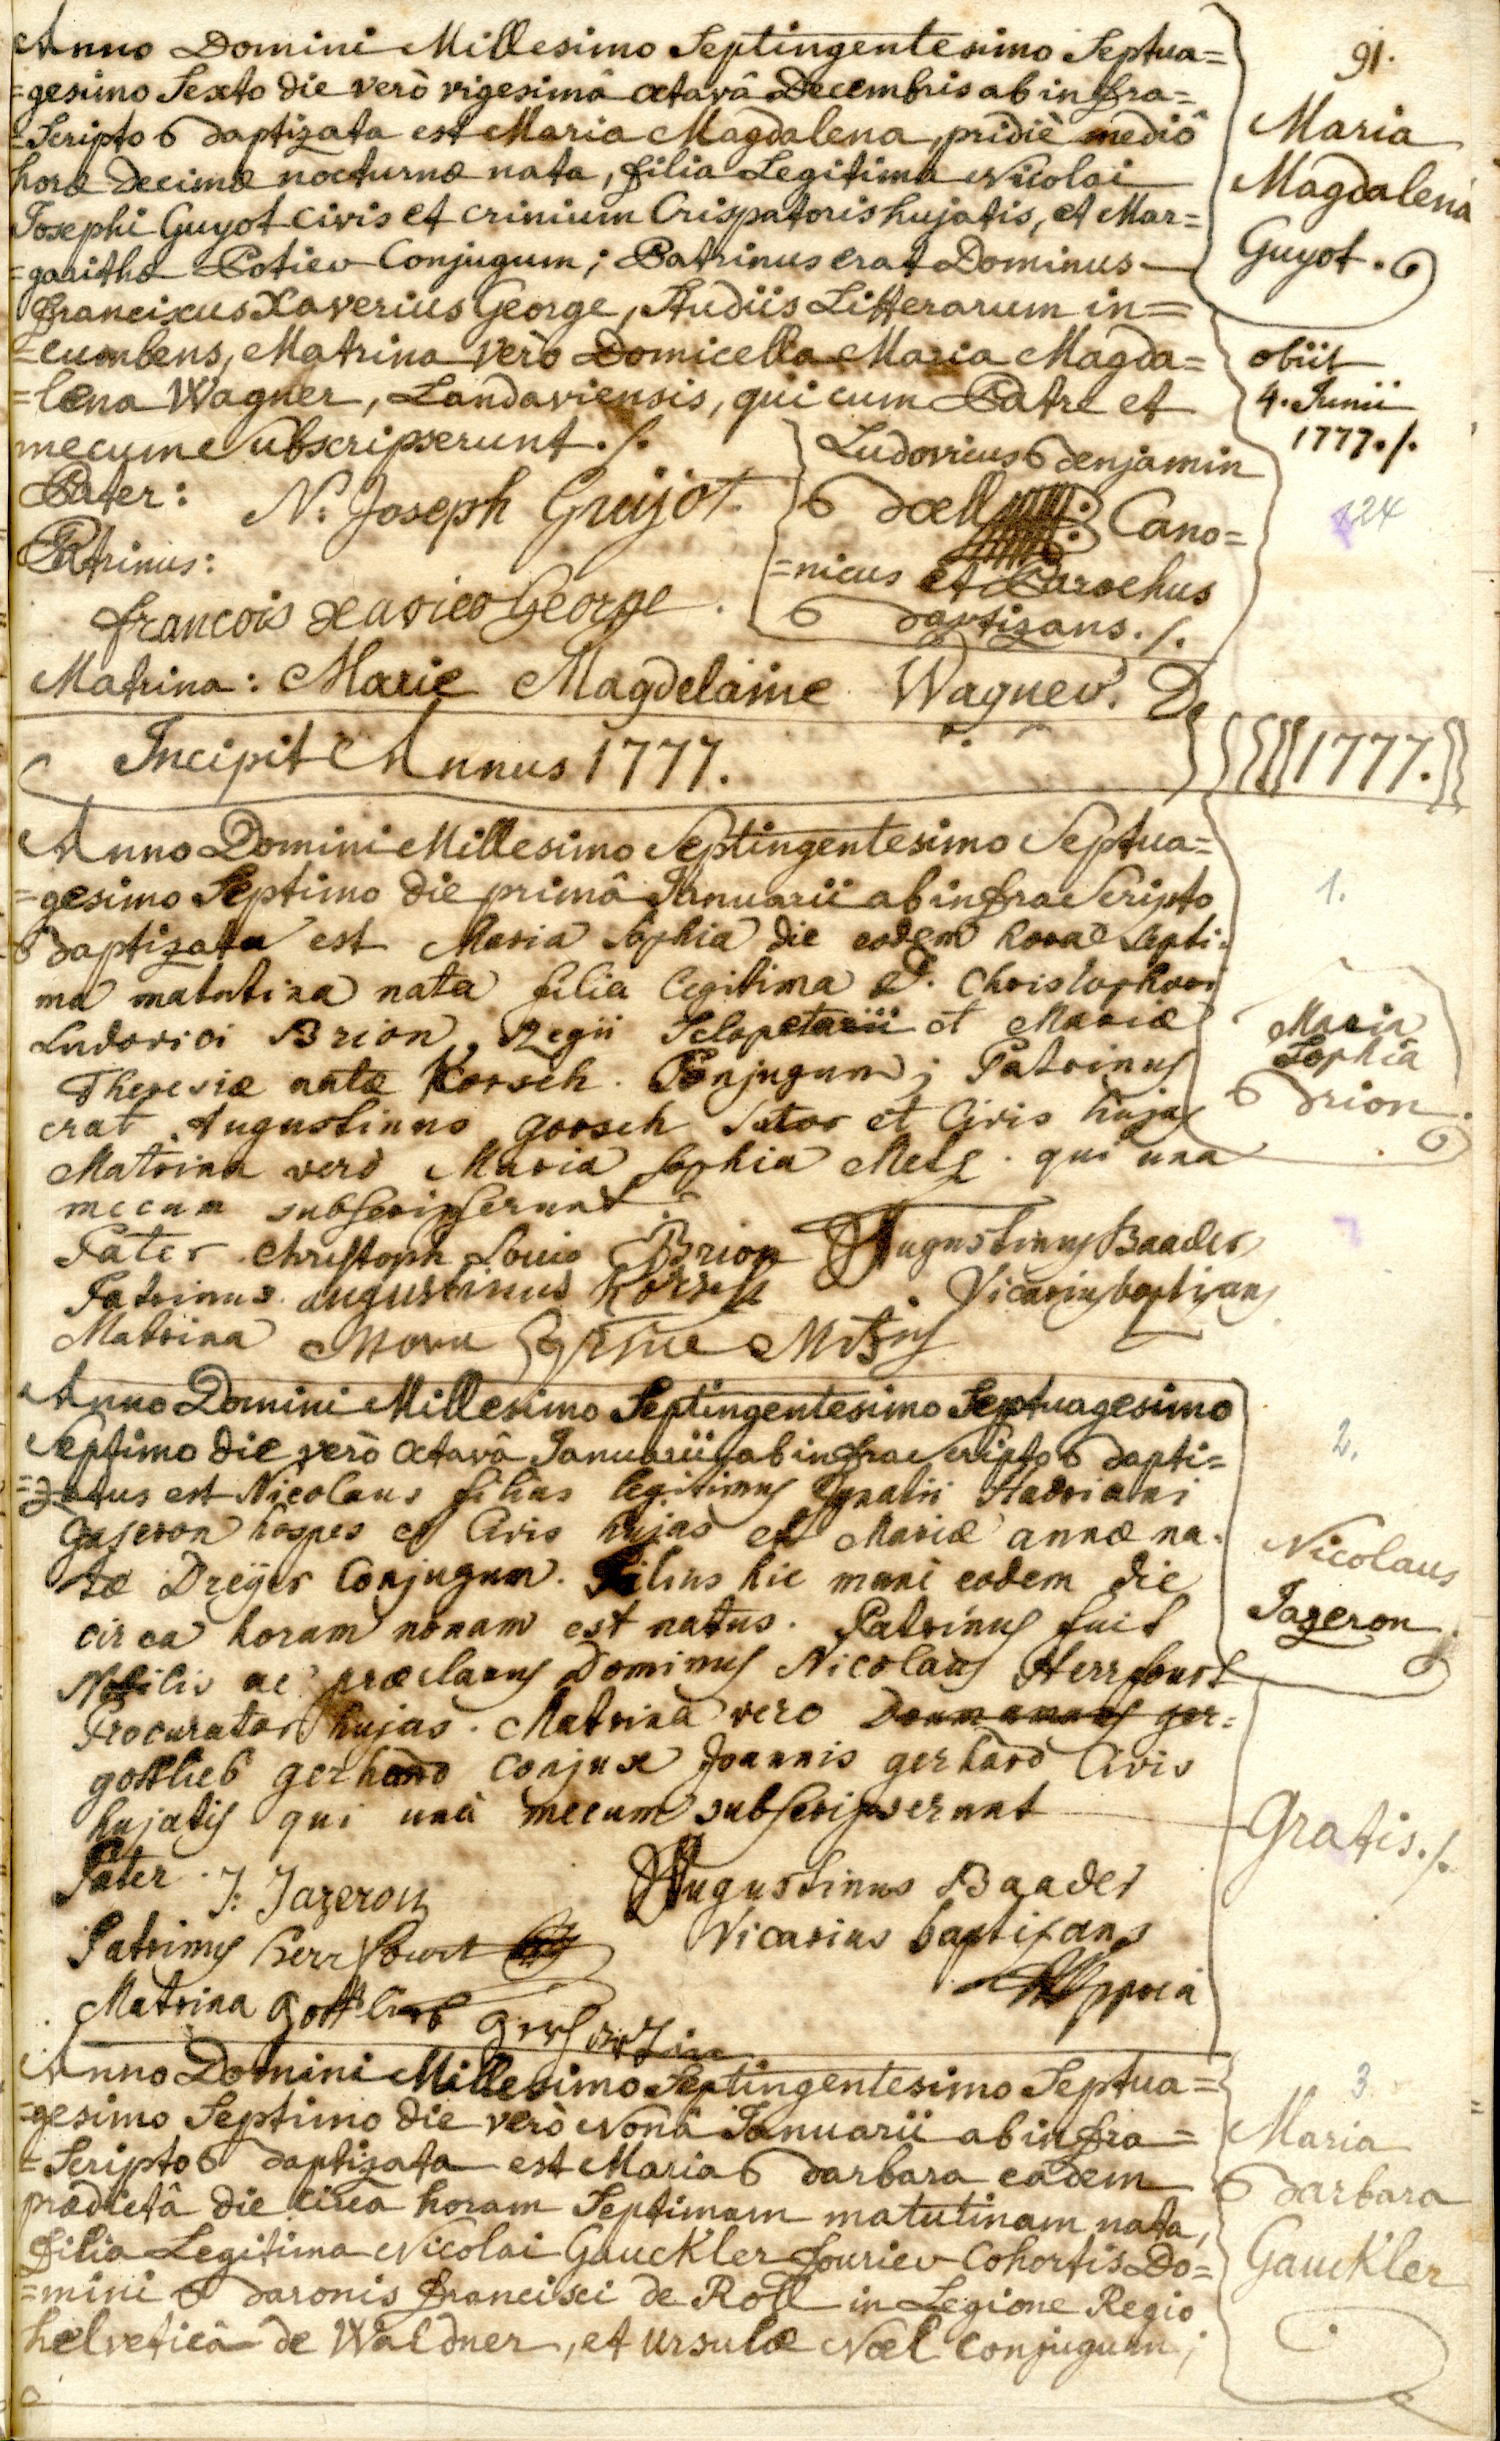 91.
Anno Domini Millesimo Septingentesimo Septua=
=gesimo Sexto die verò vigesimâ octavâ Decembris ab infra=
=Scripto Baptizata est Maria Magdalena, pridiè mediô
horæ Decimæ nocturnæ nata, filia Legitima Nicolai
Josephi Guyot Civis et crinium Crispatoris hujatis, et Mar=
=garithæ Potier Conjugum; Patrinus erat Dominus
Franciscus Xaverius George, Studiis Litterarum in=
=cumbens, Matrina verò Domicella Maria Magda=
=lena Wagner, Landaviensis, qui cum Patre et
mecum subscripserunt ./.
Maria
Magdalena
Guyot.
obiit
4. Junii
1777 ./.
124
Pater: N: Joseph Gruijot.
Patrinus:
francois xavier George.
Matrina: Marie Magdelaine Wagner. De
Ludovicus Benjamin
Boell Cano=
=nicus et Parochus
Baptizans ./.
Incipit Annus 1777.
1777.
Anno Domini Millesimo Septingentesimo Septua=
=gesimo Septimo die primâ Januarii ab infra Scripto
Baptizata est Maria Sophia die eodem hora Septi=
ma matutina nata filia legitima D. Christophori
Ludovici Brion, Regii Sclopetarii et Mariæ
Theresiæ natæ Korsch. Conjugum; Patrinus
erat Augustinus gorsch Sutor et Civis hujas
Matrina verò Maria Sophia Metz. qui una
mecum subscripserunt.
1.
Maria
Sophia
Brion.
Pater Christoph Louis Brion
Patrinus augustinus Korsch
Matrina
Augustinus Baader
Vicarius baptizans
Anno Domini Millesimo Septingentesimo Septuagesimo
Septimo die verò Octavâ Januarii ab infra Scripto Bapti=
=zatus est Nicolaus filius legitimus Ignatii Hadriani
Gaseron hospes et Civis hujas et Mariæ annæ na=
tæ Dreyer Conjugum. Filius hic manè eodem die
circa horam nonam est natus. Patrinus fuit
Nobilis ac præclarus Dominus Nicolaus Herrfourt
Procurator hujas. Matrina vero ger=
gottlieb gerhard conjux Joannis gerhard Civis
hujatis qui unà mecum subscripserunt
2.
Nicolaus
Jazeron.
Gratis ./.
Pater J: Jazeron
Patrinus herrfourt
Matrina Gottlieb
Augustinus Baader
Vicarius baptizans
Anno Domini Millesimo Septingentesimo Septua=
=gesimo Septimo die verò Nonâ Januarii ab infra=
=Scripto Baptizata est Maria Barbara eâdem
prædictâ die circa horam Septimam matutinam nata,
filia Legitima Nicolai Gauckler fourier Cohortis Do=
=mini Baronis Francisci de Roll in Legione Regio
helveticâ de Waldner, et Ursulæ Noel Conjugum;
3
Maria
Barbara
Gauckler